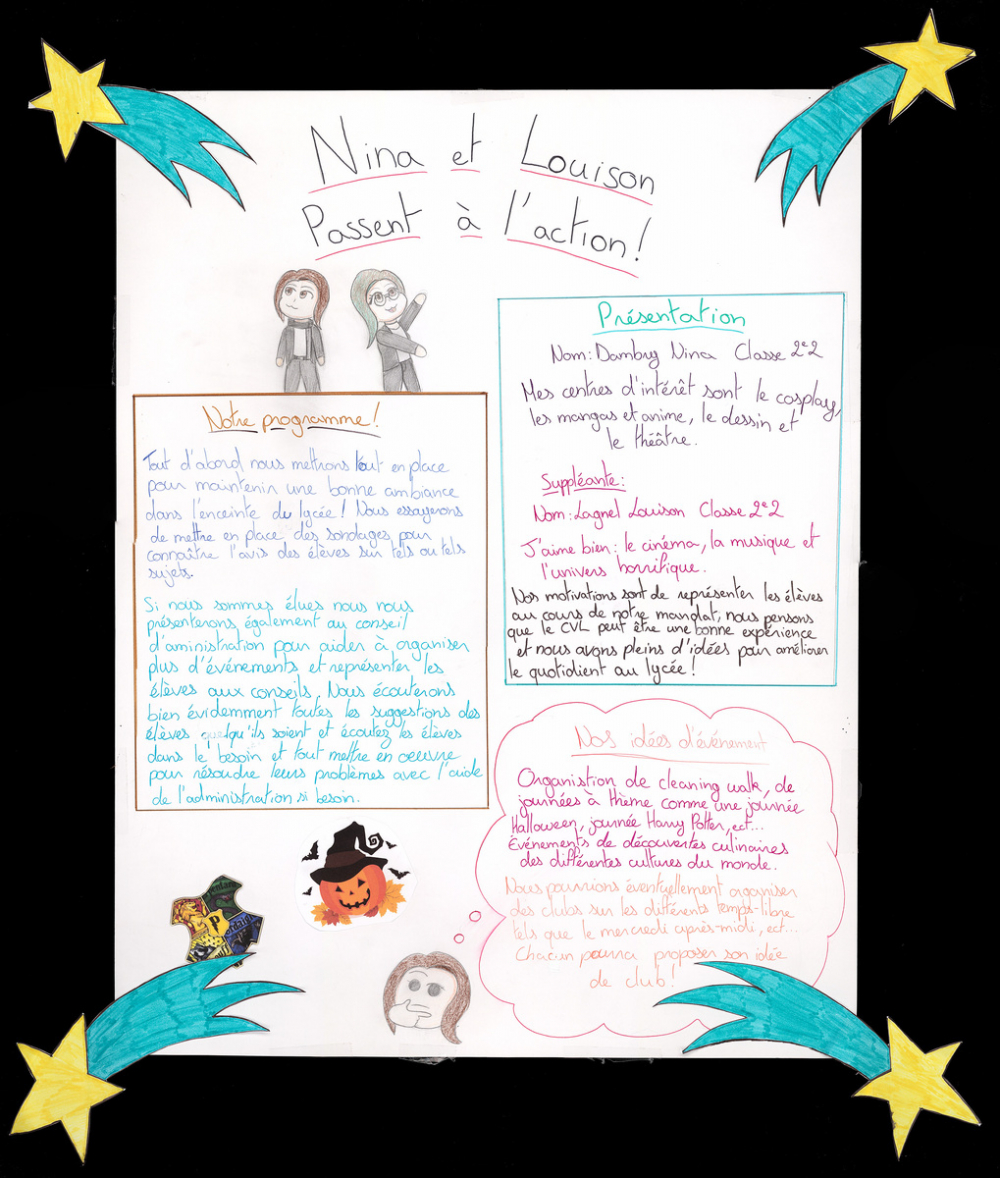 Nina et Louison
Passent à l'action!
Présentation
Nom: Dambry Nina Classe 2e2
Mes centres d'intérêt sont le cosplay,
les mangas et anime, le dessin et
le théâtre.
Suppléante:
Nom: Lagnel Louison Classe 2e2
J'aime bien: le cinéma, la musique et
l'univers horrifique.
Nos motivations sont de représenter les élèves
au cours de notre mandat, nous pensons
que le CVL peut être une bonne expérience
et nous avons pleins d'idées pour améliorer
le quotidient au lycée!
Notre programme!
Tout d'abord nous mettrons tout en place
pour maintenir une bonne ambiance
dans l'enceinte du lycée! Nous essayerons
de mettre en place des sondages pour
connaître l'avis des élèves sur tels ou tels
sujets.
Si nous sommes élues nous nous
présenterons également au conseil
d'aministration pour aider à organiser
plus d'événements et représenter les
élèves aux conseils. Nous écouterons
bien évidemment toutes les suggestions des
élèves quelqu'ils soient et écoutez les élèves
dans le besoin et tout mettre en oeuvre
pour résoudre leurs problèmes avec l'aide
de l'administration si besoin.
Nos idées d'événement
Organistion de cleaning walk, de
journées à thème comme une journée
Halloween, journée Harry Potter, ect...
Événements de découvertes culinaires
des différentes cultures du monde.
Nous pourrions éventuellement organiser
des clubs sur les différents temps-libre
tels que le mercredi après-midi, ect...
Chacun pourra proposer son idée
de club!
P